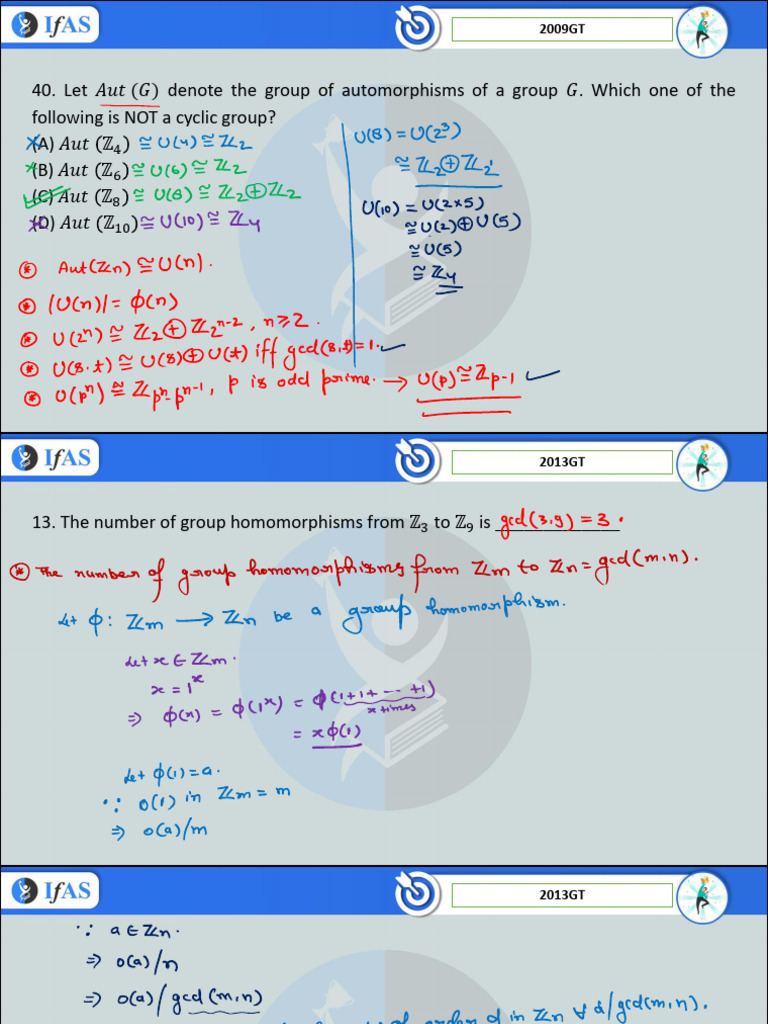 IfAS
2009GT
40. Let Aut (G) denote the group of automorphisms of a group G. Which one of the
following is NOT a cyclic group?
(A) Aut (ℤ₄) ≅ U(4) ≅ ℤ₂
(B) Aut (ℤ₆) ≅ U(6) ≅ ℤ₂
(C) Aut (ℤ₈) ≅ U(8) ≅ ℤ₂⊕ℤ₂
(D) Aut (ℤ₁₀) ≅ U(10) ≅ ℤ₄
U(8) = U(2³)
≅ ℤ₂⊕ℤ₂
U(10) = U(2×5)
≅ U(2)⊕U(5)
≅ U(5)
≅ ℤ₄
* Aut(ℤn) ≅ U(n).
* |U(n)| = ϕ(n)
* U(2ⁿ) ≅ ℤ₂⊕ℤ₂ⁿ⁻², n≥2.
* U(s·t) ≅ U(s)⊕U(t) iff gcd(s,t)=1.
* U(pⁿ) ≅ ℤpⁿ-pⁿ⁻¹, p is odd prime. → U(p) ≅ ℤp-1
IfAS
2013GT
13. The number of group homomorphisms from ℤ₃ to ℤ₉ is gcd(3,9) = 3.
* The number of group homomorphisms from ℤm to ℤn = gcd(m,n).
Let ϕ: ℤm → ℤn be a group homomorphism.
Let x ∈ ℤm.
x = 1ˣ
⇒ ϕ(x) = ϕ(1ˣ) = ϕ(1+1+ --- +1)
x times
= xϕ(1)
Let ϕ(1) = a.
∵ o(1) in ℤm = m
⇒ o(a)/m
IfAS
2013GT
∵ a ∈ ℤn.
⇒ o(a)/n
⇒ o(a)/gcd(m,n)
of order d in ℤn ∀ d/gcd(m,n).